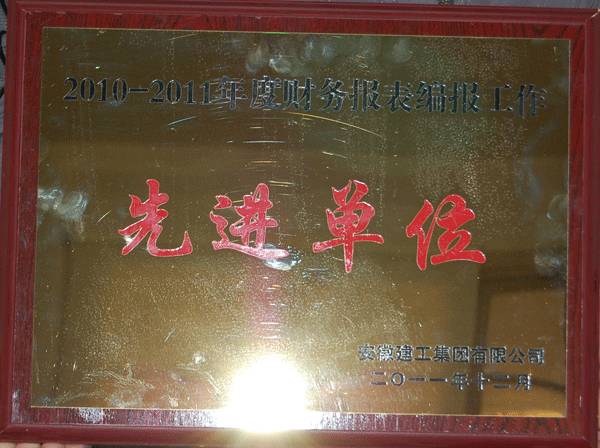 2010-2011年度财务报表编报工作
先进单位
安徽建工集团有限公司
二〇一一年十二月